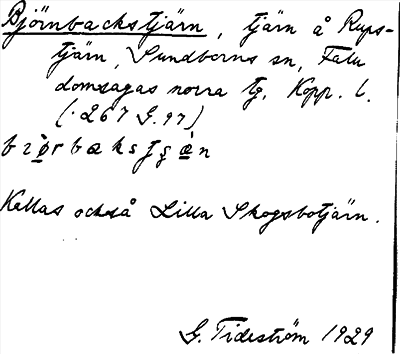 Björnbackstjärn, tjärn å Rups-
tjärn, Sundborns sn, Falu
domsagas norra tg. Kopp. l.
(.267 G.97)
Kallas också Lilla Skogsbotjärn.
G. Tideström 1929